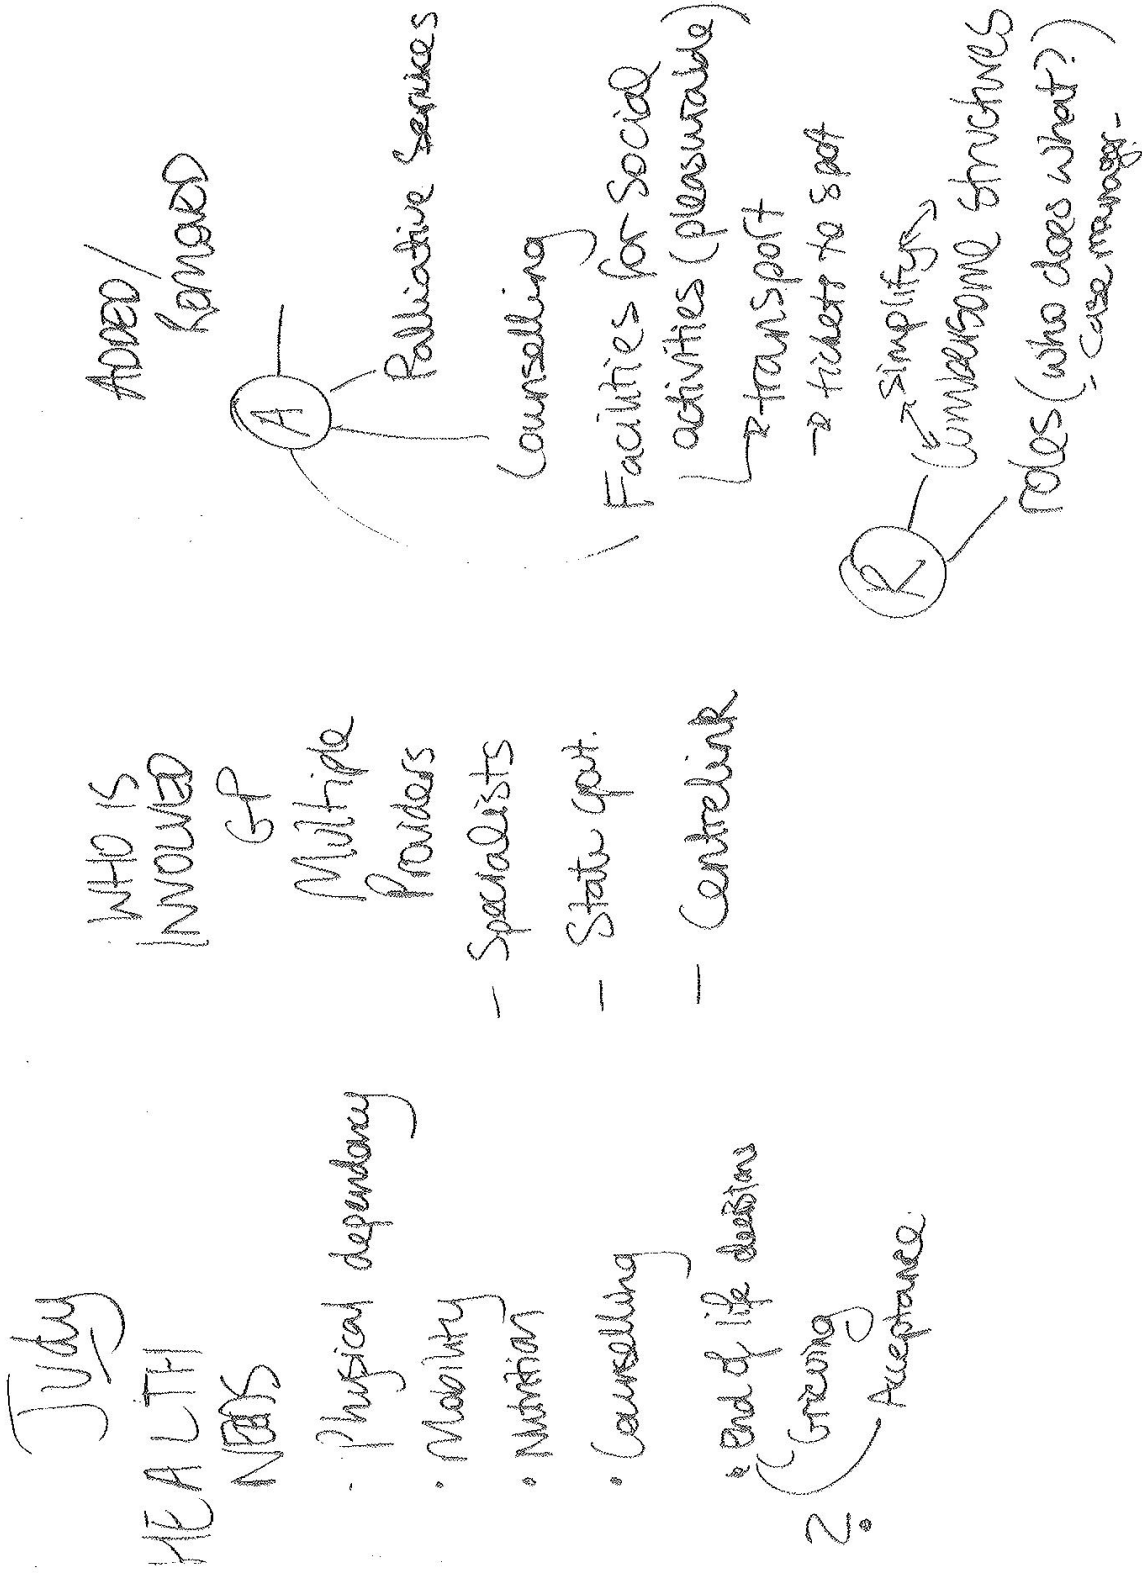 Judy
HEALTH
NEEDS
· Physical dependency
· Mobility
· Nutrition
· Counselling
· End of life decisions
Grieving
Acceptance.
2.
WHO IS
INVOLVED
GP
Multiple
Providers
- Specialists
- State govt.
- Centrelink
ADDED /
REMOVED
A
Palliative Services
Counselling
Facilities for Social
activities (pleasurable)
→ transport
→ tickets to spot
R
simplify
Cumbersome structures
roles (who does what?)
- case manager -